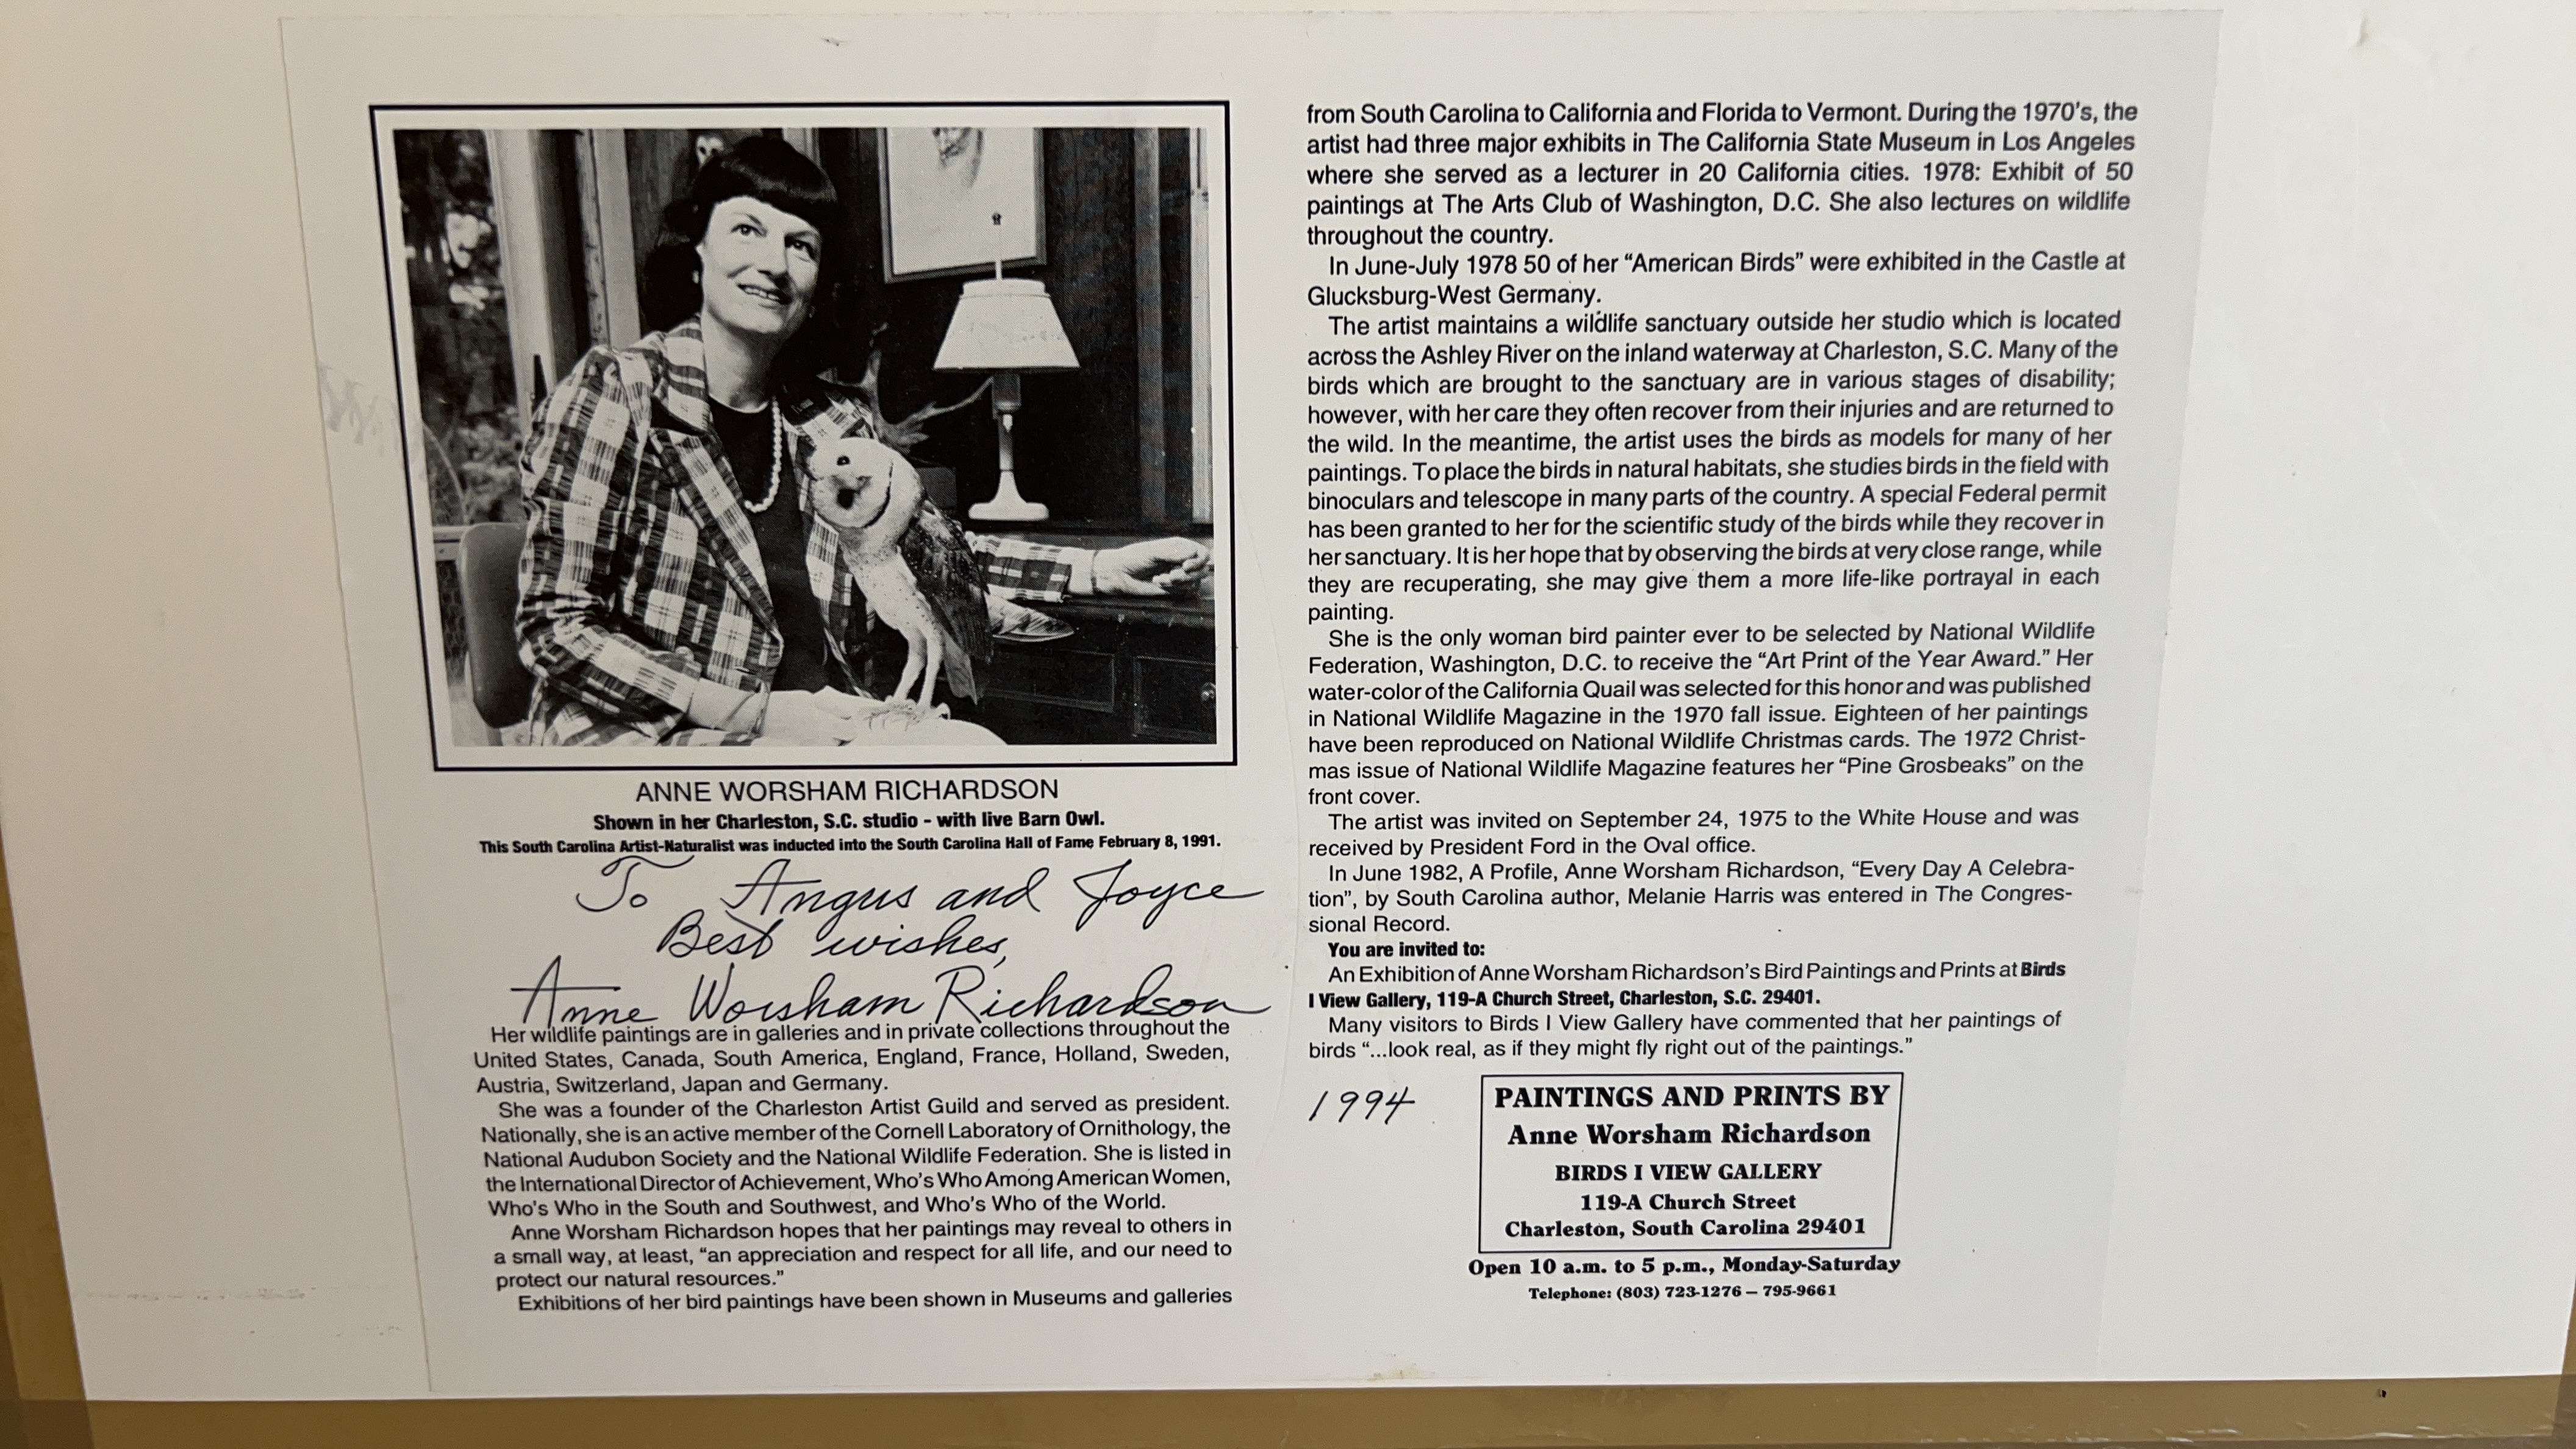 ANNE WORSHAM RICHARDSON
Shown in her Charleston, S.C. studio - with live Barn Owl.
This South Carolina Artist-Naturalist was inducted into the South Carolina Hall of Fame February 8, 1991.
To Angus and Joyce
Best wishes,
Anne Worsham Richardson
Her wildlife paintings are in galleries and in private collections throughout the
United States, Canada, South America, England, France, Holland, Sweden,
Austria, Switzerland, Japan and Germany.
She was a founder of the Charleston Artist Guild and served as president.
Nationally, she is an active member of the Cornell Laboratory of Ornithology, the
National Audubon Society and the National Wildlife Federation. She is listed in
the International Director of Achievement, Who's Who Among American Women,
Who's Who in the South and Southwest, and Who's Who of the World.
Anne Worsham Richardson hopes that her paintings may reveal to others in
a small way, at least, “an appreciation and respect for all life, and our need to
protect our natural resources.”
Exhibitions of her bird paintings have been shown in Museums and galleries
from South Carolina to California and Florida to Vermont. During the 1970's, the
artist had three major exhibits in The California State Museum in Los Angeles
where she served as a lecturer in 20 California cities. 1978: Exhibit of 50
paintings at The Arts Club of Washington, D.C. She also lectures on wildlife
throughout the country.
In June-July 1978 50 of her “American Birds” were exhibited in the Castle at
Glucksburg-West Germany.
The artist maintains a wildlife sanctuary outside her studio which is located
across the Ashley River on the inland waterway at Charleston, S.C. Many of the
birds which are brought to the sanctuary are in various stages of disability;
however, with her care they often recover from their injuries and are returned to
the wild. In the meantime, the artist uses the birds as models for many of her
paintings. To place the birds in natural habitats, she studies birds in the field with
binoculars and telescope in many parts of the country. A special Federal permit
has been granted to her for the scientific study of the birds while they recover in
her sanctuary. It is her hope that by observing the birds at very close range, while
they are recuperating, she may give them a more life-like portrayal in each
painting.
She is the only woman bird painter ever to be selected by National Wildlife
Federation, Washington, D.C. to receive the “Art Print of the Year Award.” Her
water-color of the California Quail was selected for this honor and was published
in National Wildlife Magazine in the 1970 fall issue. Eighteen of her paintings
have been reproduced on National Wildlife Christmas cards. The 1972 Christ-
mas issue of National Wildlife Magazine features her “Pine Grosbeaks” on the
front cover.
The artist was invited on September 24, 1975 to the White House and was
received by President Ford in the Oval office.
In June 1982, A Profile, Anne Worsham Richardson, “Every Day A Celebra-
tion”, by South Carolina author, Melanie Harris was entered in The Congres-
sional Record.
You are invited to:
An Exhibition of Anne Worsham Richardson's Bird Paintings and Prints at Birds
I View Gallery, 119-A Church Street, Charleston, S.C. 29401.
Many visitors to Birds I View Gallery have commented that her paintings of
birds “...look real, as if they might fly right out of the paintings.”
1994
PAINTINGS AND PRINTS BY
Anne Worsham Richardson
BIRDS I VIEW GALLERY
119-A Church Street
Charleston, South Carolina 29401
Open 10 a.m. to 5 p.m., Monday-Saturday
Telephone: (803) 723-1276 – 795-9661